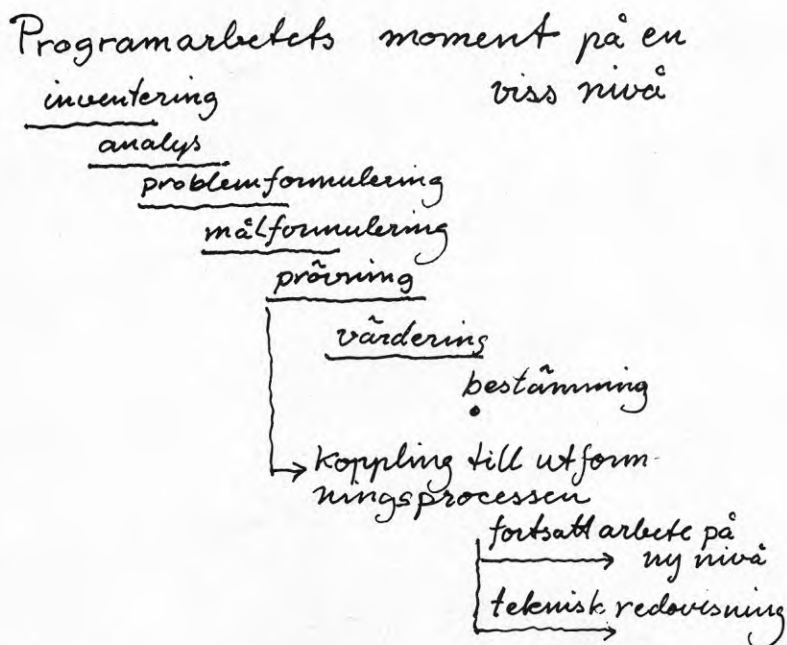 Programarbetets moment på en
viss nivå
inventering
analys
problemformulering
målformulering
prövning
värdering
bestämning
koppling till utform-
ningsprocessen
fortsatt arbete på
ny nivå
teknisk redovisning